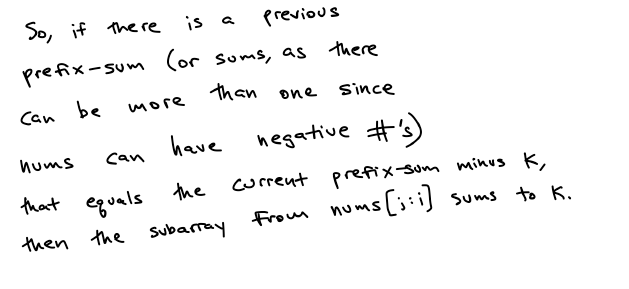 So, if there is a previous
prefix-sum (or sums, as there
can be more than one since
nums can have negative #'s)
that equals the current prefix-sum minus K,
then the subarray from nums[j:i] sums to K.